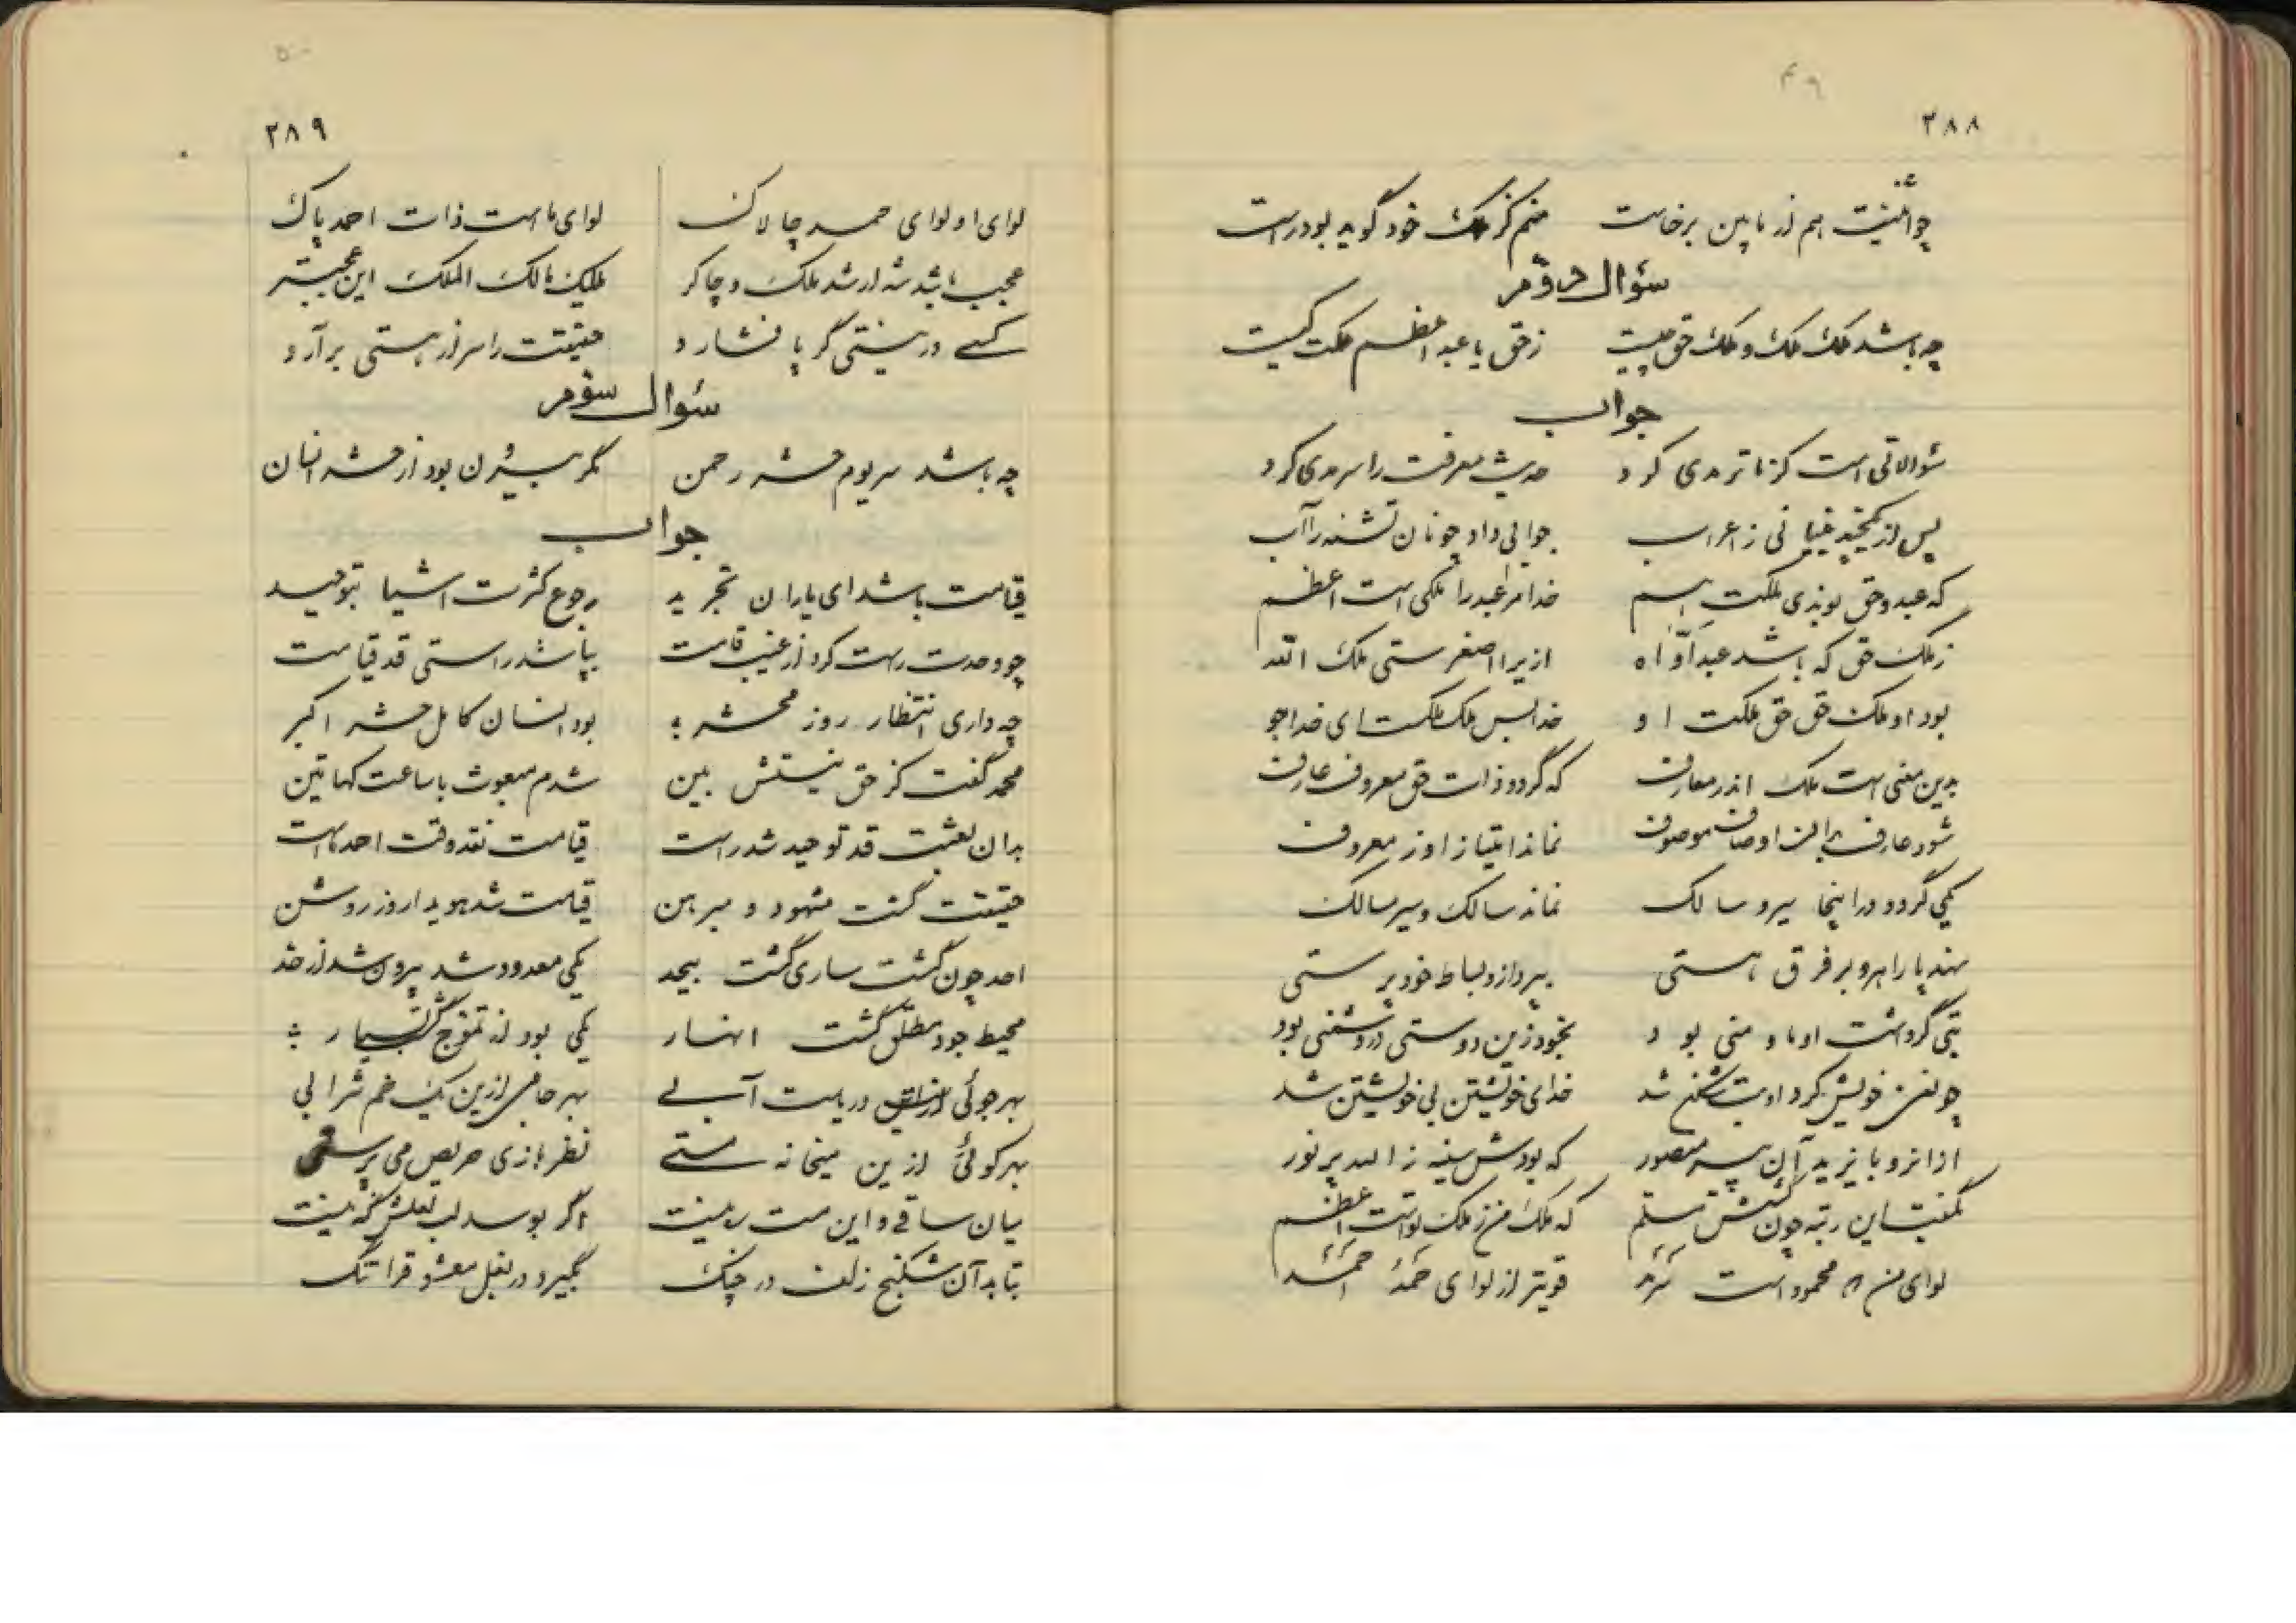 ۴۹
۲۸۸
چو اثنیّت هم از مابین برخاست منم کز ملک خود گوید بود راست
سؤال دوّم
چه باشد ملک ملک و ملک حق چیست ز حق یا عبد اعظم ملکت کیست
جواب
سؤالاتی است کز ما ترمدی کرد حدیث معرفت را سرمدی کرد
پس از غیبیانی ز اعراب جوابی داد چونان تشنه را آب
که عبد و حق بوندی ملکت هم خدا مر عبد را ملکی است اعظم
ز ملک حق که باشد عبد اوّاه ازیرا اصغرستی ملک الله
بود او ملک حق حق ملکت او خدا بس ملک ملکست ای خداجو
بدین معنی است ملک اندر معارف که گردد ذات حق معروف عارف
شود عارف بدان اوصاف موصوف نماند امتیاز او ز معروف
یکی گردد در اینجا سیر و سالک نماند سالک و سیر مسالک
نهد پا راهرو بر فرق هستی بپردازد بساط خودپرستی
بتی گر داشت او ما و منی بود بخود زین دوستی در دشمنی بود
چو نفس خویش کرد او بت‌شکن شد خدای خویشتن بی خویشتن شد
از آنرو بایزید آن پیر منصور که بودش سینه ز الله پر نور
بگفت این رتبه چون گشتش مسلّم که ملک من ز ملک تو است اعظم
لوای من محمود است سرمد قویتر از لوای حمد احمد
۵۰
۲۸۹
لوای او لوای حمد چالاک لوای ما است ذات احمد پاک
عجب باشد شه ار شد ملک و چاکر ملیک مالک الملک این عجبتر
کسی در نیستی گر پا فشارد حقیقت را سر از هستی برآرد
سؤال سوّم
چه باشد سر یوم حشر رحمن مگر بیرون بود از حشر انسان
جواب
قیامت باشد ای یاران تجرید رجوع کثرت اشیا بتوحید
چو وحدت راست کرد از غیب قامت بپا شد راستی قد قیامت
چه داری انتظار روز محشر بود انسان کامل حشر اکبر
محمد گفت کز حق نیستش بین شدم مبعوث با ساعت کهاتین
بدان بعثت قد توحید شد راست قیامت نقد وقت احمد ماست
حقیقت گشت مشهود و مبرهن قیامت شد هویدا روز روشن
احد چون گشت ساری گشت بیحد یکی معدود شد بیرون شد از حد
محیط جود مطلق گشت انهار یکی بود از تموّج گشت بسیار
بهر جوئی از دریاست آبی بهر جامی ازین یک خم شرابی
بهر کوئی ازین میخانه مستی نظر بازی حریص می پرستی
میان ساقی و این مست بینیت اگر بوسد لب لعلش گنه نیست
بتابد آن شکنج زلف در چنگ بگیرد در بغل معشوق را تنگ